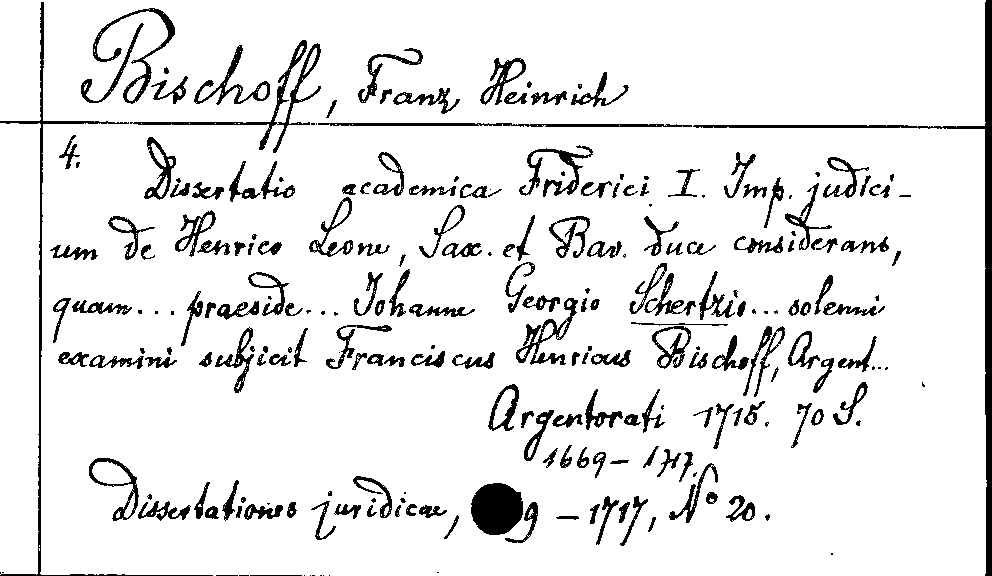 Bischoff, Franz Heinrich
4.
Dissertatio academica Friderici I. Imp. judici-
um de Henrico Leone, Sax. et Bav. duce considerans,
quam... praeside... Johanne Georgio Schertzio... solenni
examini subjicit Franciscus Henricus Bischoff, Argent...
Argentorati 1715. 70 S.
1669 - 1717.
Dissertationes juridicae, 9 - 1717, No 20.